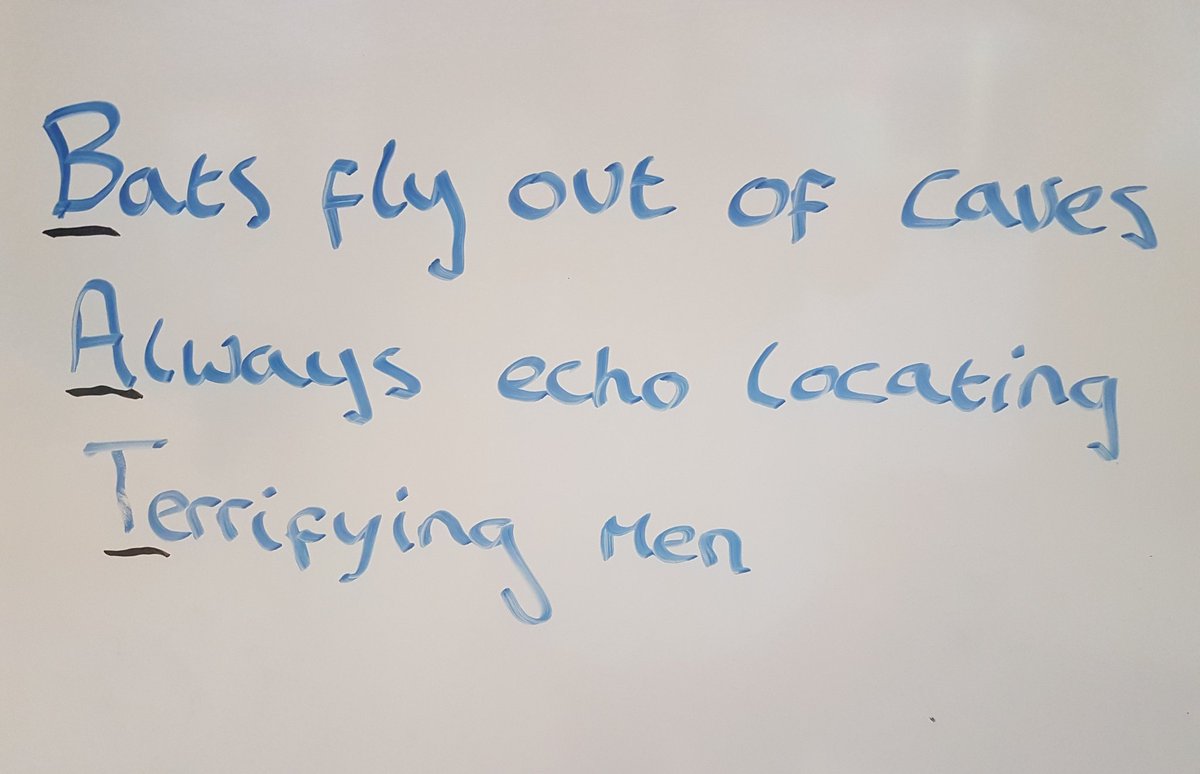 Bats fly out of caves
Always echo locating
Terrifying Men